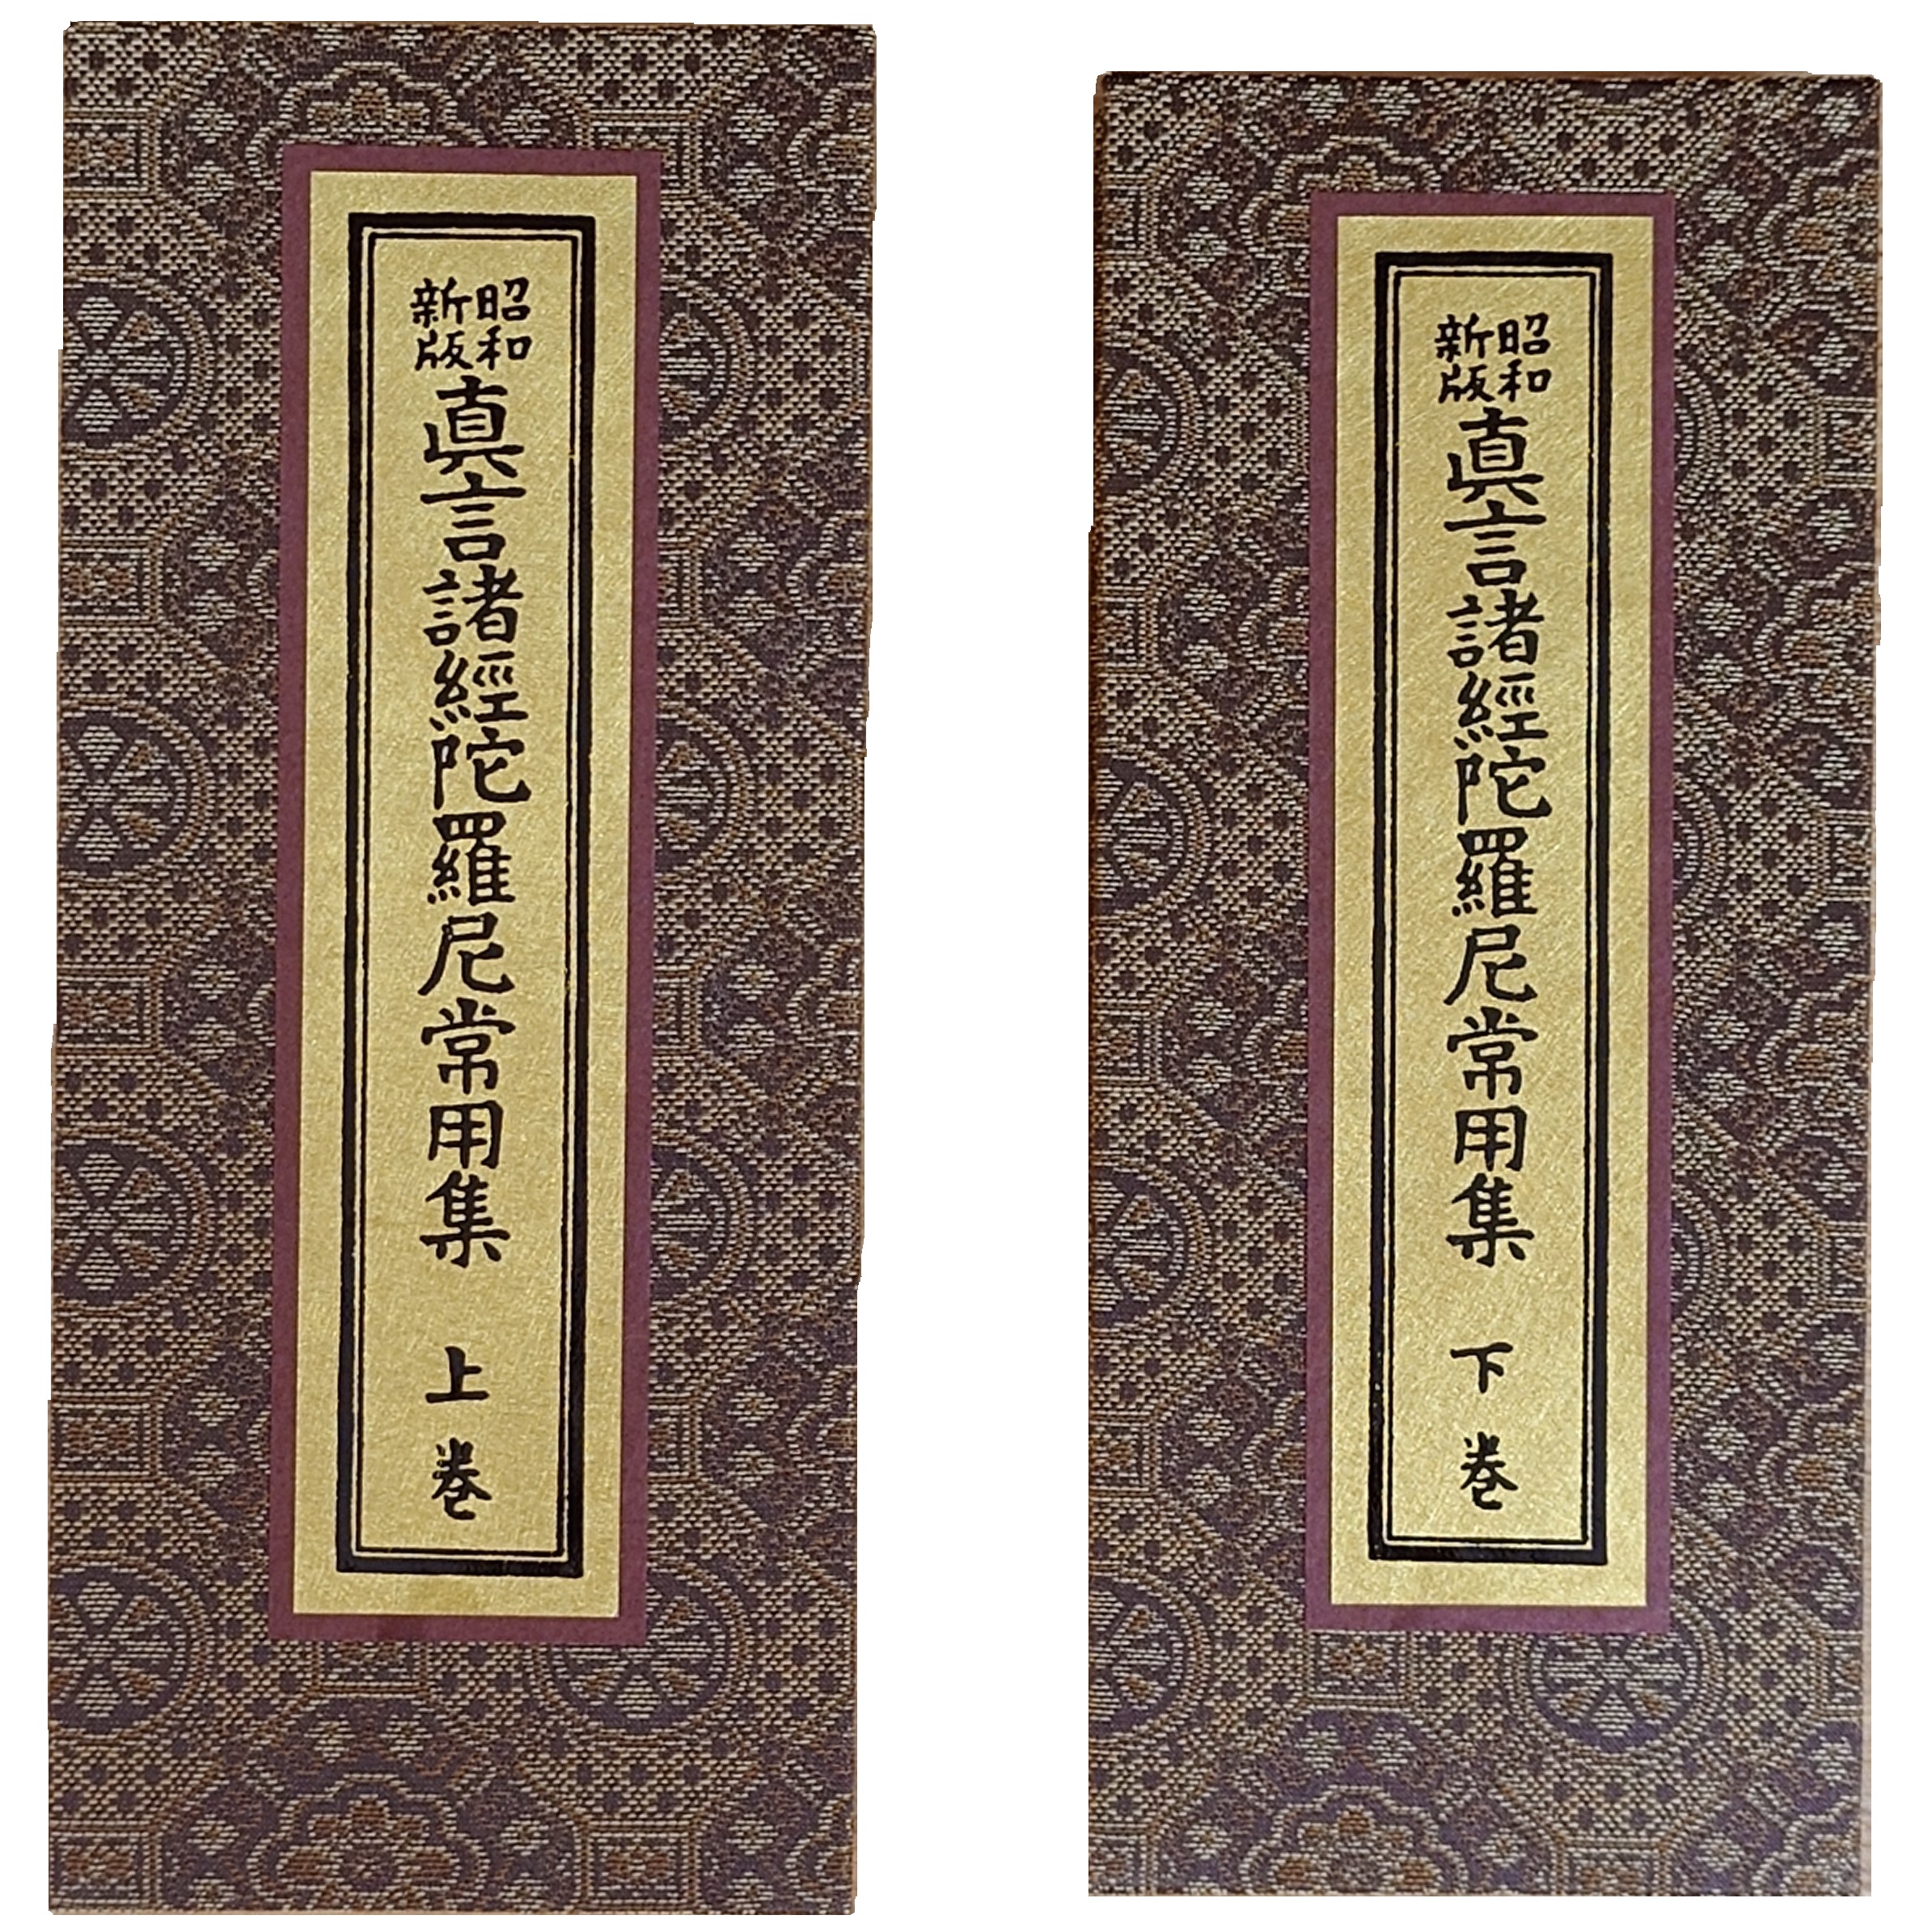 昭和
新版
眞言諸經陀羅尼常用集 上巻
昭和
新版
眞言諸經陀羅尼常用集 下巻